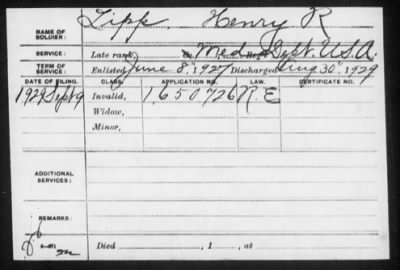 NAME OF SOLDIER: Lipp. Henry R
SERVICE: Late rank, Med. Dept. U.S.A.
TERM OF SERVICE: Enlisted June 8, 1927 Discharged Aug. 30, 1929
DATE OF FILING. CLASS. APPLICATION NO. LAW. CERTIFICATE NO.
1929 Sept 9 Invalid, 1,650,726 R.E
Widow,
Minor,
ADDITIONAL SERVICES:
REMARKS:
Died , 1 , at